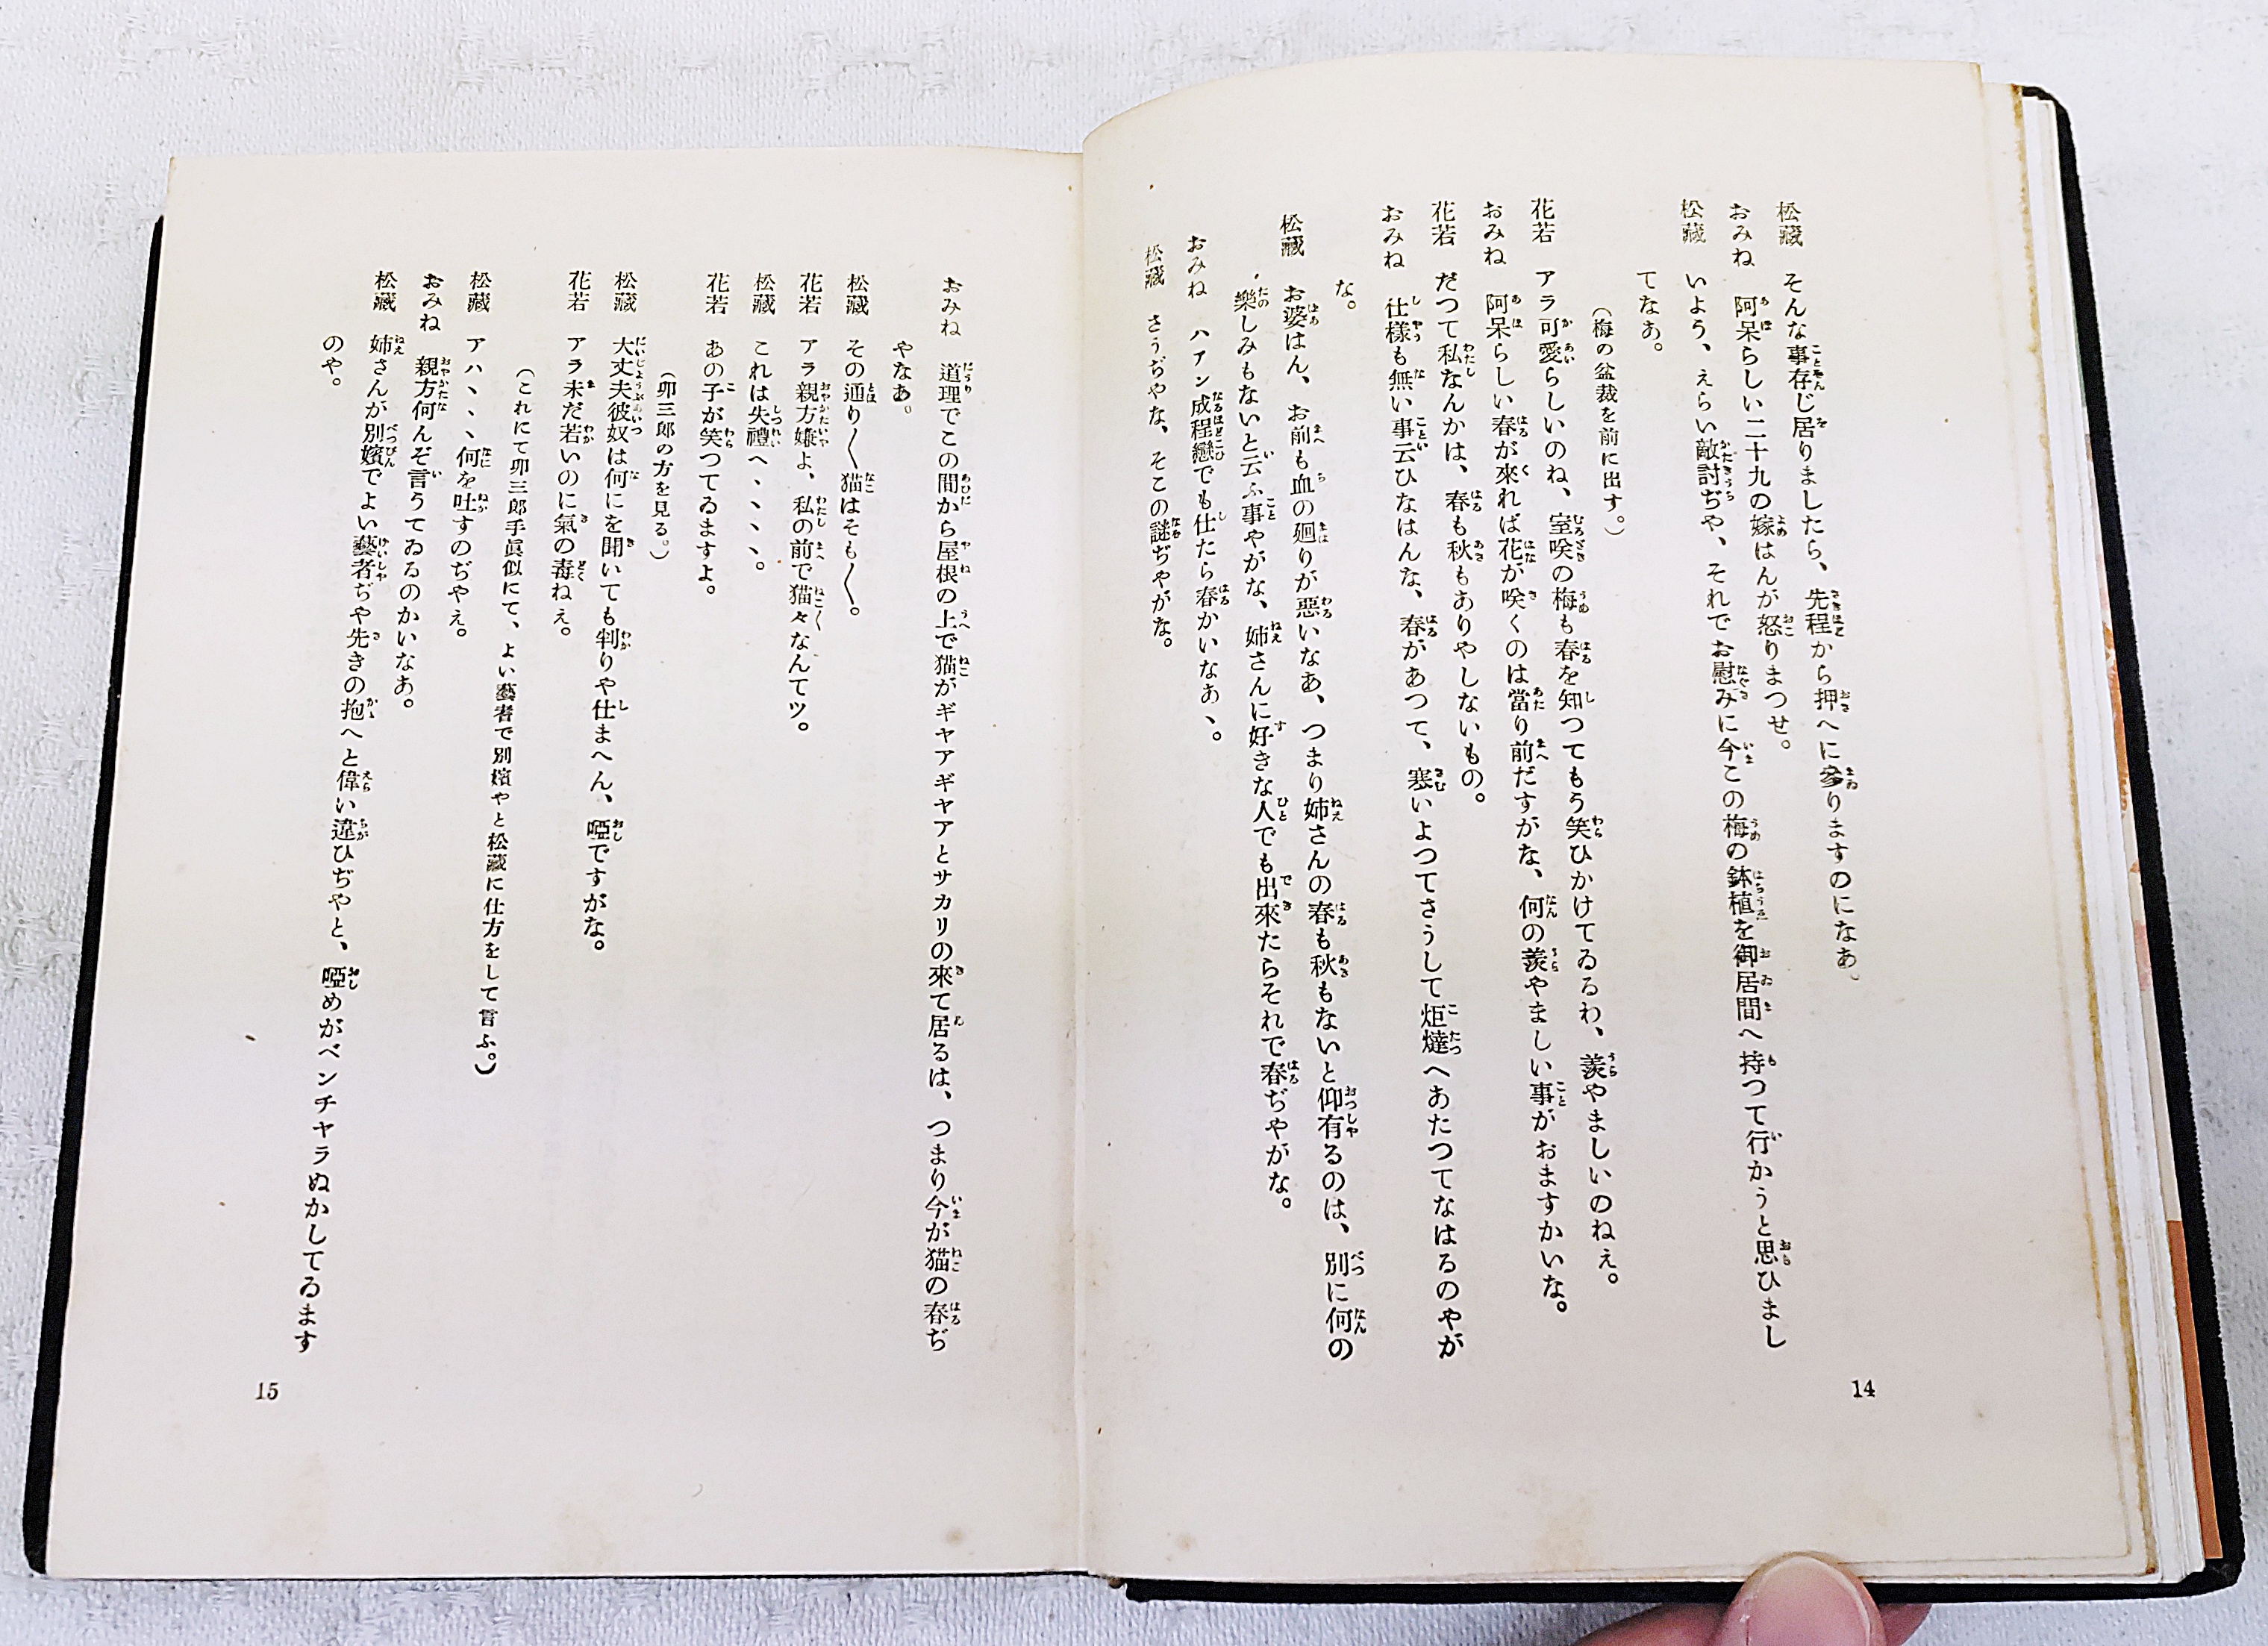 松藏　そんな事存じ居りましたら、先程から押へに參りますのになあ。
おみね　阿呆らしい二十九の嫁はんが怒りまつせ。
松藏　いよう、えらい敵討ぢや、それでお慰みに今この梅の鉢植を御居間へ持つて行かうと思ひまし
てなあ。
（梅の盆栽を前に出す。）
花若　アラ可愛らしいのね、室咲の梅も春を知つてもう笑ひかけてゐるわ、羨やましいのねえ。
おみね　阿呆らしい春が來れば花が咲くのは當り前だすがな、何の羨やましい事がおますかいな。
花若　だつて私なんかは、春も秋もありやしないもの。
おみね　仕樣も無い事云ひなはんな、春があつて、寒いよつてさうして炬燵へあたつてなはるのやが
な。
松藏　お婆はん、お前も血の廻りが惡いなあ、つまり姉さんの春も秋もないと仰有るのは、別に何の
樂しみもないと云ふ事やがな、姉さんに好きな人でも出來たらそれで春ぢやがな。
おみね　ハアン成程戀でも仕たら春かいなあ、。
松藏　さうぢやな、そこの謎ぢやがな。
14
おみね　道理でこの間から屋根の上で猫がギヤアギヤアとサカリの來て居るは、つまり今が猫の春ぢ
やなあ。
松藏　その通り〱猫はそも〱。
花若　アラ親方嫌よ、私の前で猫々なんてツ。
松藏　これは失禮ヘ、、、、。
花若　あの子が笑つてゐますよ。
（卯三郎の方を見る。）
松藏　大丈夫彼奴は何にを聞いても判りや仕まへん、啞ですがな。
花若　アラ未だ若いのに氣の毒ねえ。
（これにて卯三郎手眞似にて、よい藝者で別嬪やと松藏に仕方をして言ふ。）
松藏　アハ、、、何を吐すのぢやえ。
おみね　親方何んぞ言うてゐるのかいなあ。
松藏　姉さんが別嬪でよい藝者ぢや先きの抱へと偉い違ひぢやと、啞めがベンチヤラぬかしてゐます
のや。
15